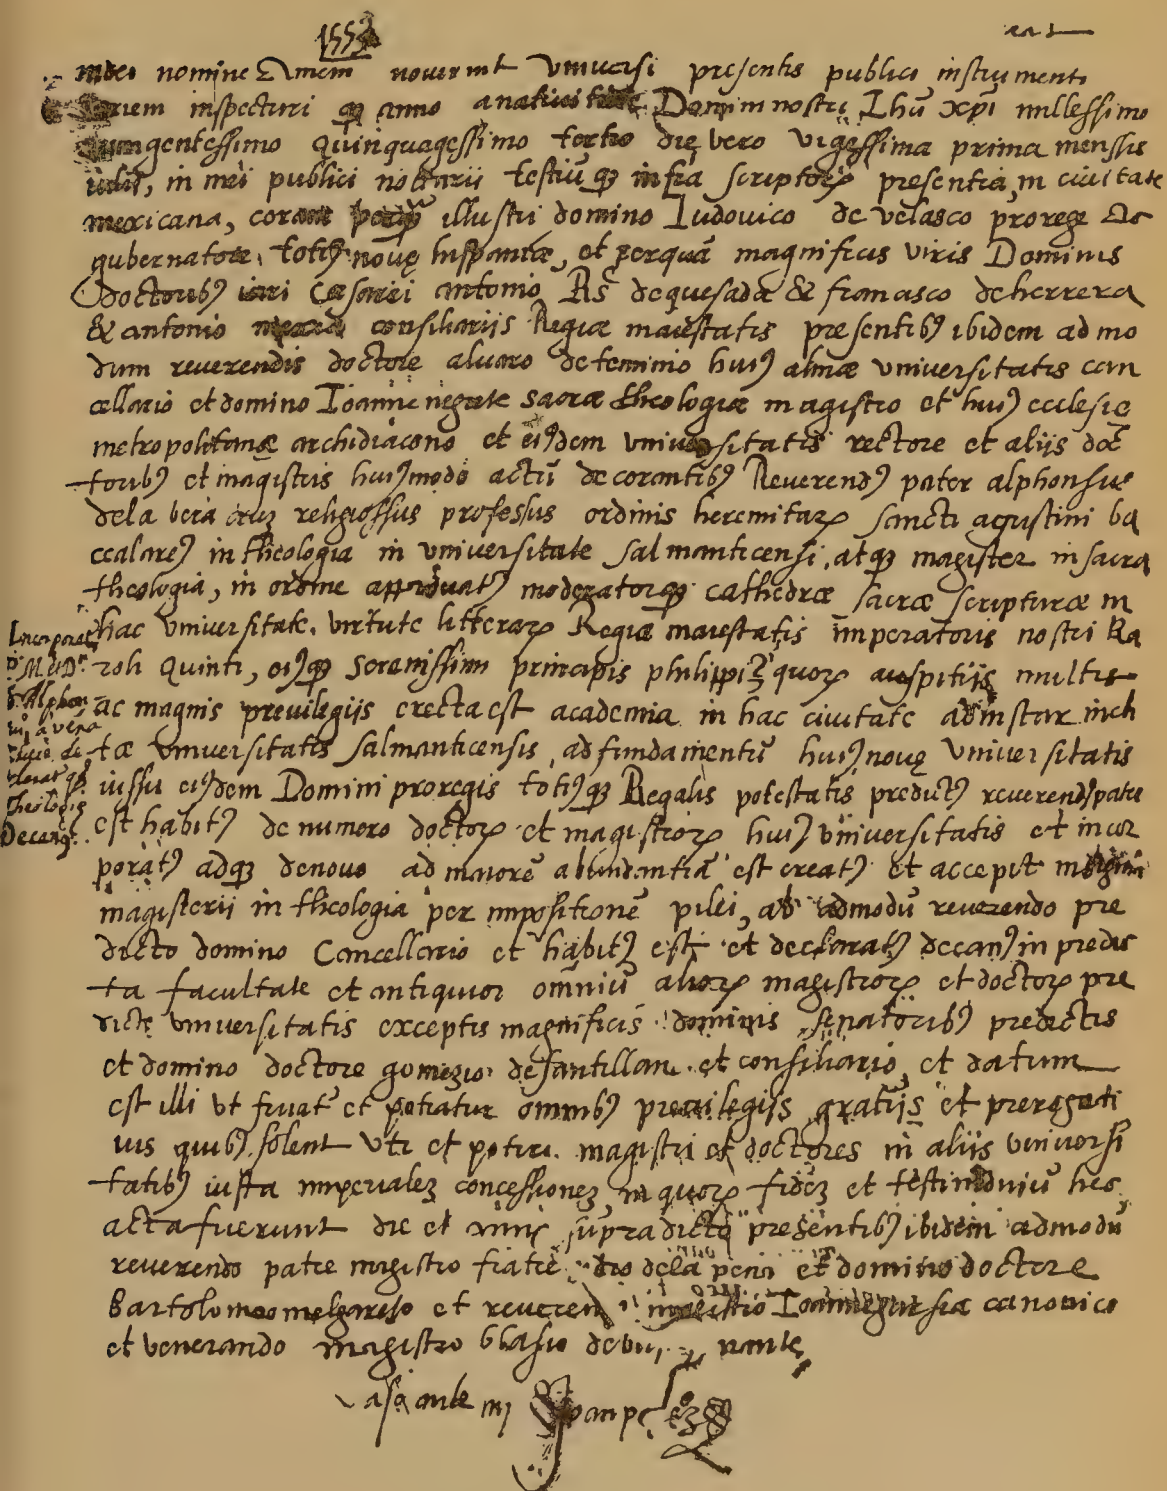 1553
nomine Amen noverint Universi presentis publici instrumenti
seriem inspecturi qȝ anno a nativitate Domini nostri Ihū xpī millessimo
quingentessimo quinquagessimo tertio die vero vigessima prima mensis
iulii, in mei publici notarii testiū qȝ infra scriptorꝝ presentia, in civitate
mexicana, coram illustri domino Ludovico de velasco prorege Ac
gubernatore totiꝰ novę hispaniæ, et perquā magnificis viris Dominis
doctoribꝰ Cesarei antonio Rs de quesada & francisco de herrera
& antonio consiliariis Regiæ maiestatis presentibꝰ ibidem ad mo
dum reverendis doctore alvaro de treminio huiꝰ almæ universitatis can
cellario et domino Ioanne negrete sacræ theologiæ magistro et huiꝰ ecclesię
metropolitanæ archidiacono et eiꝰdem universitatis rectore et aliis doc
toribꝰ et magistris huiꝰmodo actū decorantibꝰ Reverendꝰ pater alphonsus
de la vera cruz religiossus professus ordinis heremitarꝝ sancti agustini ba
ccalareꝰ in theologia in universitate salmanticensi, atqȝ magister in sacra
theologia, in ordine approbatꝰ moderatorqȝ cathedræ sacræ scripturæ in
hac universitate. virtute litterarꝝ Regiæ maiestatis imperatoris nostri Ka
roli quinti, eiꝰqȝ serenissimi principis philippi quorꝝ auspitiis multis
ac magnis previlegiis erecta est academia in hac civitate ad instar incli
tæ universitatis salmanticensis, ad fundamentū huiꝰ novę universitatis
iussu eiꝰdem Domini proregis totiꝰqȝ Regalis potestatis predictꝰ reverendꝰ pater
est habitꝰ de numero doctorꝝ et magistrorꝝ huiꝰ universitatis et incor
poratꝰ adqȝ denovo ad maiorē abundantiā est creatꝰ et accepit insignia
magisterii in theologia per impositionē pilei, ab admodū reverendo pre
dicto domino Cancellario et habitꝰ est et declaratꝰ decanꝰ in predic
ta facultate et antiquior omniū aliorꝝ magistrorꝝ et doctorꝝ pre
dictę universitatis exceptis magnificis dominis senatoribꝰ predictis
et domino doctore gomezio de santillan et consiliario et datum
est illi ut fruatr et potiatur omnibꝰ previlegiis gratiis et prerogati
vis quibꝰ solent uti et potiri magistri et doctores in aliis universi
tatibꝰ iusta imperialez concessionez in quorꝝ fidez et testimoniū hec
acta fuerunt die et supradicto presentibꝰ ibidem admodū
reverendo patre magistro fratre dio de la pena et domino doctore
Bartolomeo melgarejo et reveren magistro Ioanne garsia canonico
et venerando magistro blasio de
Incorporatꝰ
P. M. D.
Alphon
a vera
Theologię
Decanꝰ
Pasó ante mi Joan perez